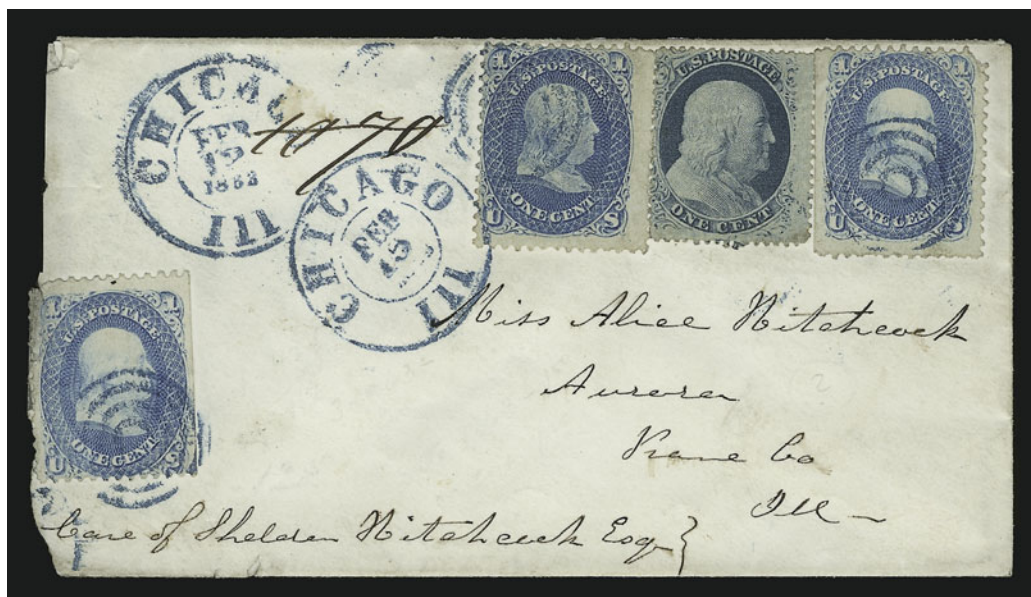 CHICAGO
FEB
1862
ILL
10 70
CHICAGO
FEB
15
ILL
U.S. POSTAGE
ONE CENT
U.S. POSTAGE
ONE CENT
U.S. POSTAGE
ONE CENT
U.S. POSTAGE
ONE CENT
Miss Alice Hitchcock
Aurora
Kane Co
Ill
Care of Sheldon Hitchcock Esq